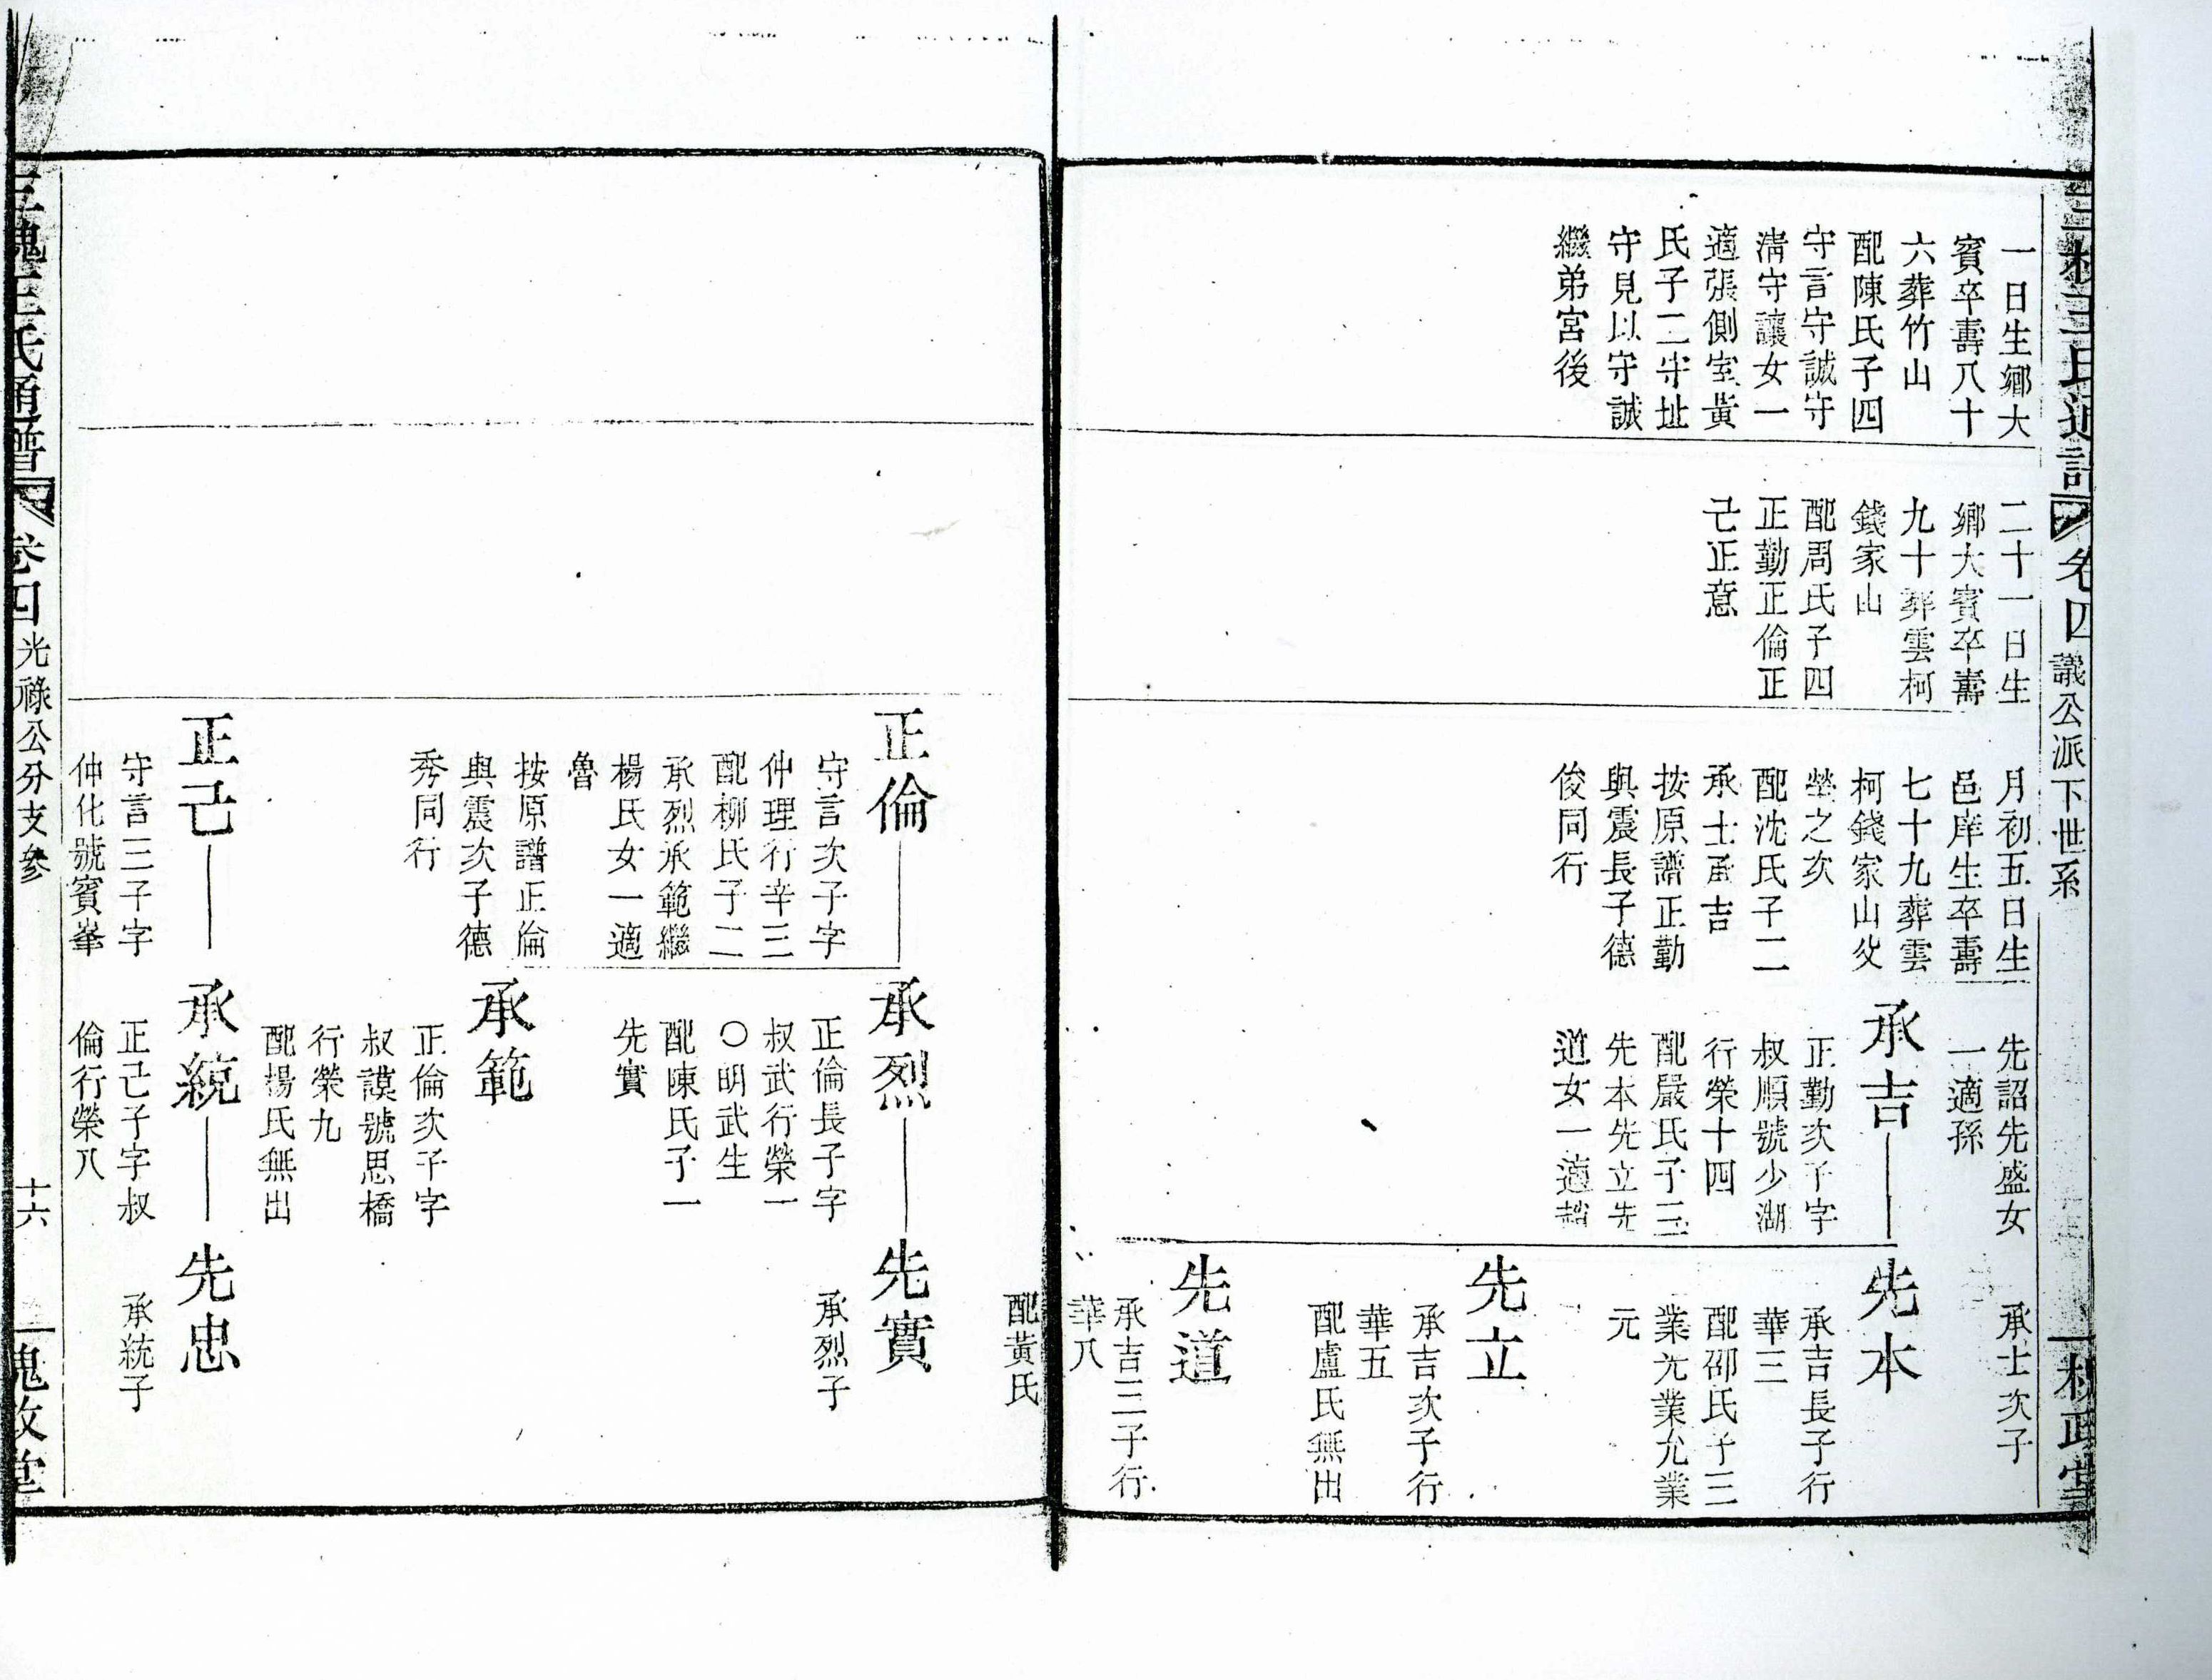 三槐王氏通譜
卷四
議公派下世系
三槐堂
一日生鄉大
賓卒壽八十
六葬竹山
配陳氏子四
守言守誠守
淸守讓女一
適張側室黃
氏子二守址
守見以守誠
繼弟宮後
二十一日生
鄉大賓卒壽
九十葬雲柯
錢家山
配周氏子四
正勤正倫正
己正意
月初五日生
邑庠生卒壽
七十九葬雲
柯錢家山父
塋之次
配沈氏子二
承士承吉
按原譜正勤
與震長子德
俊同行
先詔先盛女
一適孫
承吉
正勤次子字
叔順號少湖
行榮十四
配嚴氏子三
先本先立先
道女一適趙
承士次子
先本
承吉長子行
華三
配邵氏子三
業光業允業
元
先立
承吉次子行
華五
配盧氏無出
先道
承吉三子行
華八
配黃氏
正倫
守言次子字
仲理行辛三
配柳氏子二
承烈承範繼
楊氏女一適
魯
按原譜正倫
與震次子德
秀同行
正己
守言三子字
仲化號賓峯
承烈
正倫長子字
叔武行榮一
○明武生
配陳氏子一
先實
承範
正倫次子字
叔謨號思橋
行榮九
配楊氏無出
承統
正己子字叔
倫行榮八
先實
承烈子
先忠
承統子
三槐王氏通譜
卷四
光祿公分支參
十六
三槐堂